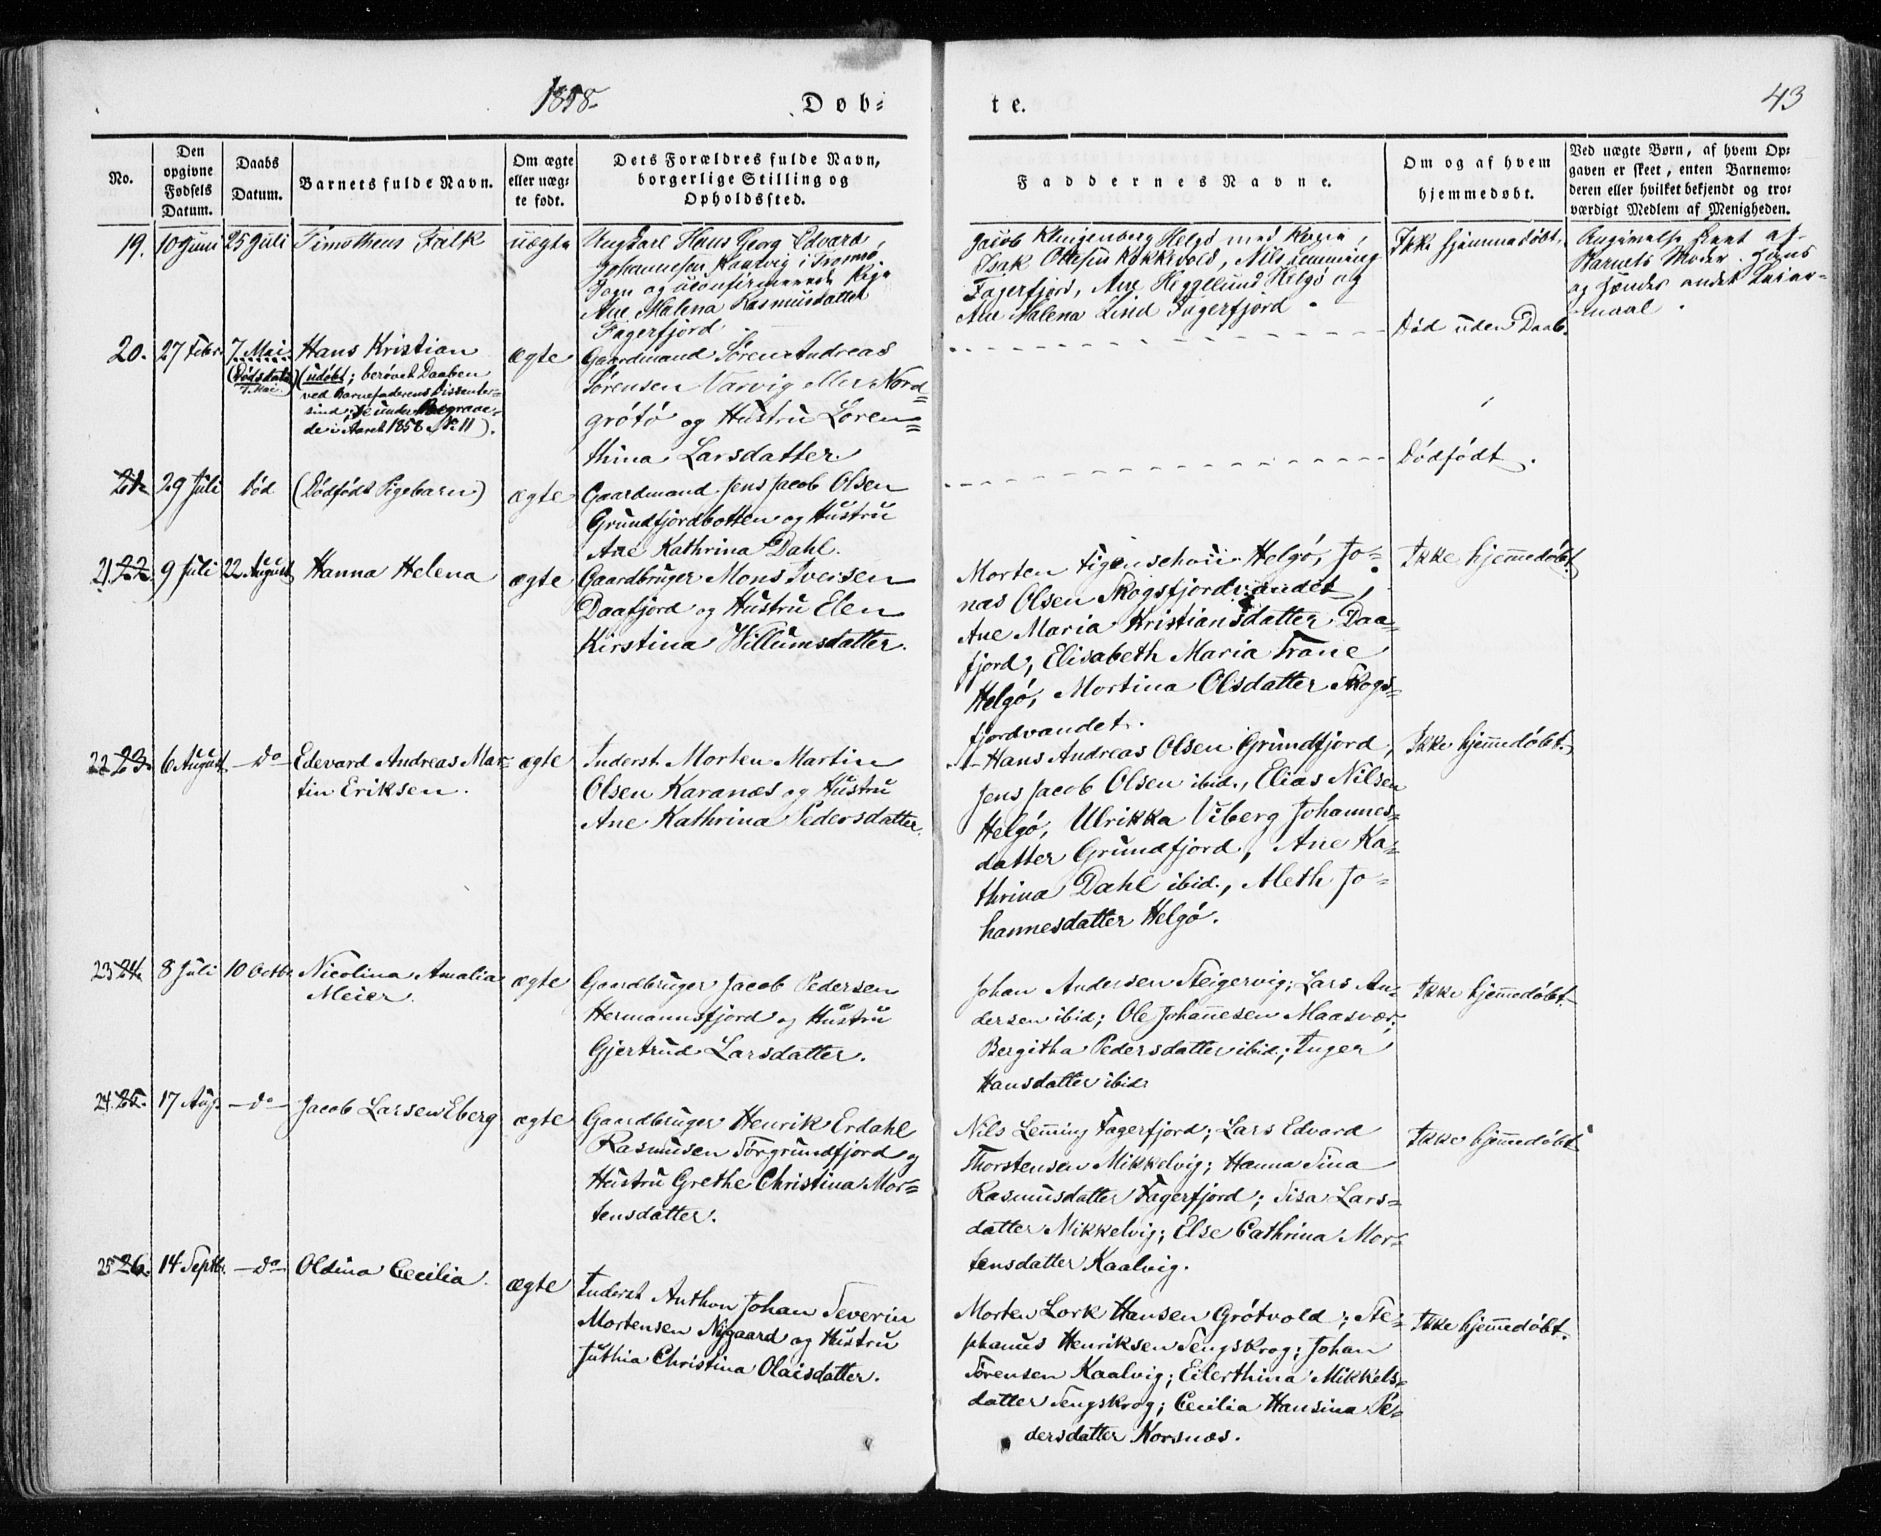 1858.
Døb-
te.
43
No.
Den
opgivne
Fødsels
Datum.
Daabs
Datum.
Barnets fulde Navn.
Om ægte
eller uæg-
te født.
Dets Forældres fulde Navn,
borgerlige Stilling og
Opholdssted.
Faddernes Navne.
Om og af hvem
hjemmedøbt.
Ved uægte Børn, af hvem Op-
gaven er skeet, enten Barnemo-
deren eller hvilket bekjendt og tro-
værdigt Medlem af Menigheden.
19.
10 Juni
25 Juli
Timotheus Falk
uægte
Ungkarl Hans Georg Edvard
Johannesen Kaadvig i Tromsø
Sogn og uconfirmerede Pige
Ane Malena Rasmusdatter
Fagerfjord.
Jacob Klingenberg Helgø med Kone,
Isak Ottesen Kokkevold, Nils Lemming
Fagerfjord, Ane Heggelund Helgø og
Ane Malena Lind Fagerfjord.
Ikke hjemmedøbt.
Angivelse skeet af
Barnets Moder. Hans
og hendes andet Leier-
maal.
20.
27 Febr.
7. Mai
(Dødsdato
7. Mai)
Hans Kristian
(udøbt; berøvet Daaben
ved Barnefaderens Dissenter-
sind; se under Begrave-
de i Aaret 1858 No 11).
ægte
Gaardmand Søren Andreas
Sørensen Varvig eller Nord-
grøtø og Hustru Loren-
thina Larsdatter
Død uden Daab.
21.
29 Juli
Død
(Dødfødt Pigebarn)
ægte
Gaardmand Jens Jacob Olsen
Grundfjordbotten og Hustru
Ane Kathrina Dahl.
Dødfødt.
21. 22.
9 Juli
22 August
Hanna Helena
ægte
Gaardbruger Mons Iversen
Daafjord og Hustru Elen
Kirstina Willumsdatter.
Morten Figenschou Helgø, Jo-
nas Olsen Skogsfjordvandet,
Ane Maria Kristiansdatter Daa-
fjord, Elisabeth Maria Trane
Helgø, Mortina Olsdatter Skogs-
fjordvandet.
Ikke hjemmedøbt.
22 23.
6 August
— do —
Edevard Andreas Mar-
tin Eriksen.
ægte
Inderst Morten Martin
Olsen Karanæs og Hustru
Ane Kathrina Pedersdatter.
Hans Andreas Olsen Grundfjord,
Jens Jacob Olsen ibid., Elias Nilsen
Helgø, Ulrikka Viberg Johannes-
datter Grundfjord, Ane Ka-
thrina Dahl ibid., Aleth Jo-
hannesdatter Helgø.
Ikke hjemmedøbt.
23 24.
8 Juli
10 Octb.
Nicolina Amalia
Meier.
ægte
Gaardbruger Jacob Pedersen
Hermannsfjord og Hustru
Gjertrud Larsdatter.
Johan Andersen Steigervig; Lars An-
dersen ibid; Ole Johannesen Maasvær;
Bergitha Pedersdatter ibid.; Inger
Hansdatter ibid.
Ikke hjemmedøbt.
24. 25.
17 Aug.
— do —
Jacob Larsen Eberg
ægte
Gaardbruger Henrik Erdahl
Rasmusen Sørgrundfjord og
Hustru Grethe Christina Mor-
tensdatter.
Nils Lemming Fagerfjord; Lars Edvard
Thorstensen Mikkelvig; Hanna Sina
Rasmusdatter Fagerfjord; Sisa Lars-
datter Mikkelvig; Else Cathrina Mor-
tensdatter Kaalvig.
Ikke hjemmedøbt
25 26.
14 Septbr.
— do —
Oldina Cecilia.
ægte
Inderst Anthon Johan Severin
Mortensen Nygaard og Hustru
Juthia Christina Olaisdatter.
Morten Lork Hansen Grøtvold; Ste-
phanus Henriksen Sengskrog; Johan
Sørensen Kaalvig; Eilerthina Mikkels-
datter Sengskrog; Cecilia Hansina Pe-
dersdatter Korsnæs.
Ikke hjemmedøbt.